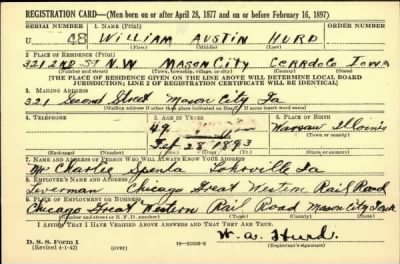 REGISTRATION CARD—(Men born on or after April 28, 1877 and on or before February 16, 1897)
SERIAL NUMBER 1. NAME (Print) ORDER NUMBER
U 48 WILLIAM AUSTIN HURD
(First) (Middle) (Last)
2. PLACE OF RESIDENCE (Print)
321 2ND ST N.W MASON CITY IOWA
(Number and street) (Town, township, village, or city) (County) (State)
[THE PLACE OF RESIDENCE GIVEN ON THE LINE ABOVE WILL DETERMINE LOCAL BOARD
JURISDICTION; LINE 2 OF REGISTRATION CERTIFICATE WILL BE IDENTICAL]
3. MAILING ADDRESS
321 Second Street Mason City Ia
(Mailing address if other than place indicated on line 2. If same insert word same)
4. TELEPHONE 5. AGE IN YEARS 6. PLACE OF BIRTH
49 Warsaw
DATE OF BIRTH (Town or county)
Feb 28 1893 Illinois
(Exchange) (Number) (Mo.) (Day) (Yr.) (State or country)
7. NAME AND ADDRESS OF PERSON WHO WILL ALWAYS KNOW YOUR ADDRESS
Mr Charlie Ia
8. EMPLOYER'S NAME AND ADDRESS
Chicago Great Western Rail Road
9. PLACE OF EMPLOYMENT OR BUSINESS
Chicago Great Western Rail Road Mason City Iowa
(Number and street or R. F. D. number) (Town) (County) (State)
I AFFIRM THAT I HAVE VERIFIED ABOVE ANSWERS AND THAT THEY ARE TRUE.
D. S. S. Form 1
(Revised 4-1-42) W. A. Hurd
(Registrant's signature)